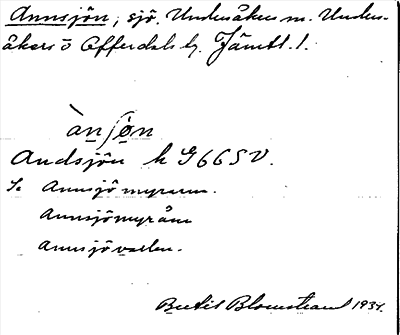 Annsjön, sjö. Undersåkers sn. Under-
åkers o Offerdals tg. Jämtl. l.
àn∫ǫn
Andsjön k G665V.
Se Annsjömyrarna.
Annsjömyråm
Annsjövallen.
Bertil Blomstrand 1934.